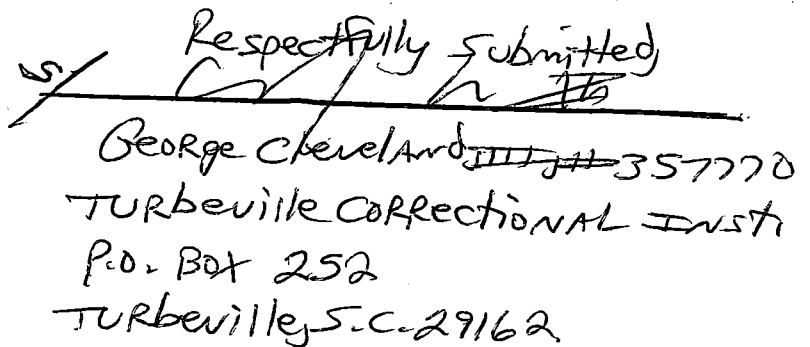 Respectfully Submitted,
S/
George Cleveland III 357770
Turbeville Correctional Inst.
P.O. Box 252
Turbeville, S.C. 29162